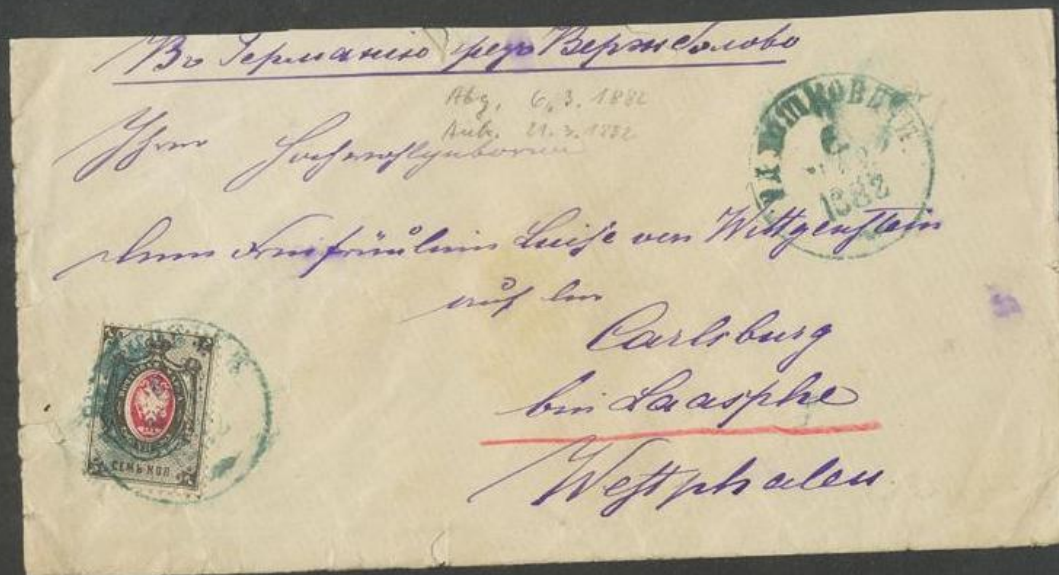 Въ Германію чрезъ Вержболово
Abg. 6. 3. 1882
Ank. 21. 3. 1882
Ihrer Hochwohlgeboren
dem Freifräulein Luise von Wittgenstein
auf der
Carlsburg
bei Laasphe
Westphalen
1882
СЕМЬ КОП